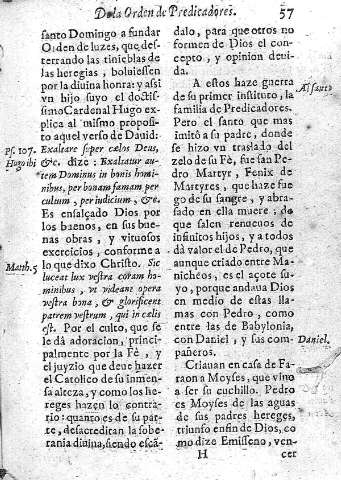 De la Orden de Predicadores. 57
santo Domingo a fundar
Orden de luzes, que des-
terrando las tinieblas de
las heregias, boluiessen
por la diuina honra: y assi
vn hijo suyo el doctis-
simo Cardenal Hugo ex-
plica al mismo proposi-
to aquel verso de Dauid:
Ps. 107. Exaltare super cælos Deus,
Hugo ibi &c. dize: Exaltatur au-
tem Dominus in bonis homi-
nibus, per bonam famam per
cultum, per iudicium, &c.
Es ensalçado Dios por
los buenos, en sus bue-
nas obras, y vituosos
exercicios, conforme a
Matth. 5 lo que dixo Christo. Sic
luceat lux vestra coram ho-
minibus, vt videant opera
vestra bona, & glorificent
parrem vestrum, qui in cælis
est. Por el culto, que se
le dà adoracion, princi-
palmente por la Fè, y
el juyzio que deue hazer
el Catolico de su inmen-
sa alteza, y como los he-
reges hazen lo contra-
rio: quanto es de su par-
te, desacreditan la sobe-
rania diuina, siendo escã-
dalo, para que otros no
formen de Dios el con-
cepto, y opinion deui-
da.
A estos haze guerra
de su primer instituto, la
familia de Predicadores.
Pero el santo que mas
imitò a su padre, donde
se hizo vn traslado del
zelo de su Fè, fue san Pe-
dro Martyr, Fenix de
Martyres, que haze fue
go de su sangre, y abra-
sado en ella muere: de
que salen renueuos de
infinitos hijos, y a todos
dà valor el de Pedro, que
aunque criado entre Ma-
nicheos, es el açote su-
yo, porque andaua Dios
en medio de estas lla-
mas con Pedro, como
entre las de Babylonia,
con Daniel, y sus com- Daniel.
pañeros.
Criauan en casa de Fa-
raon a Moyses, que vino
a ser su cuchillo. Pedro
es Moyses de las aguas
de sus padres hereges,
triunfo enfin de Dios, co
mo dize Emisseno, ven-
H cer